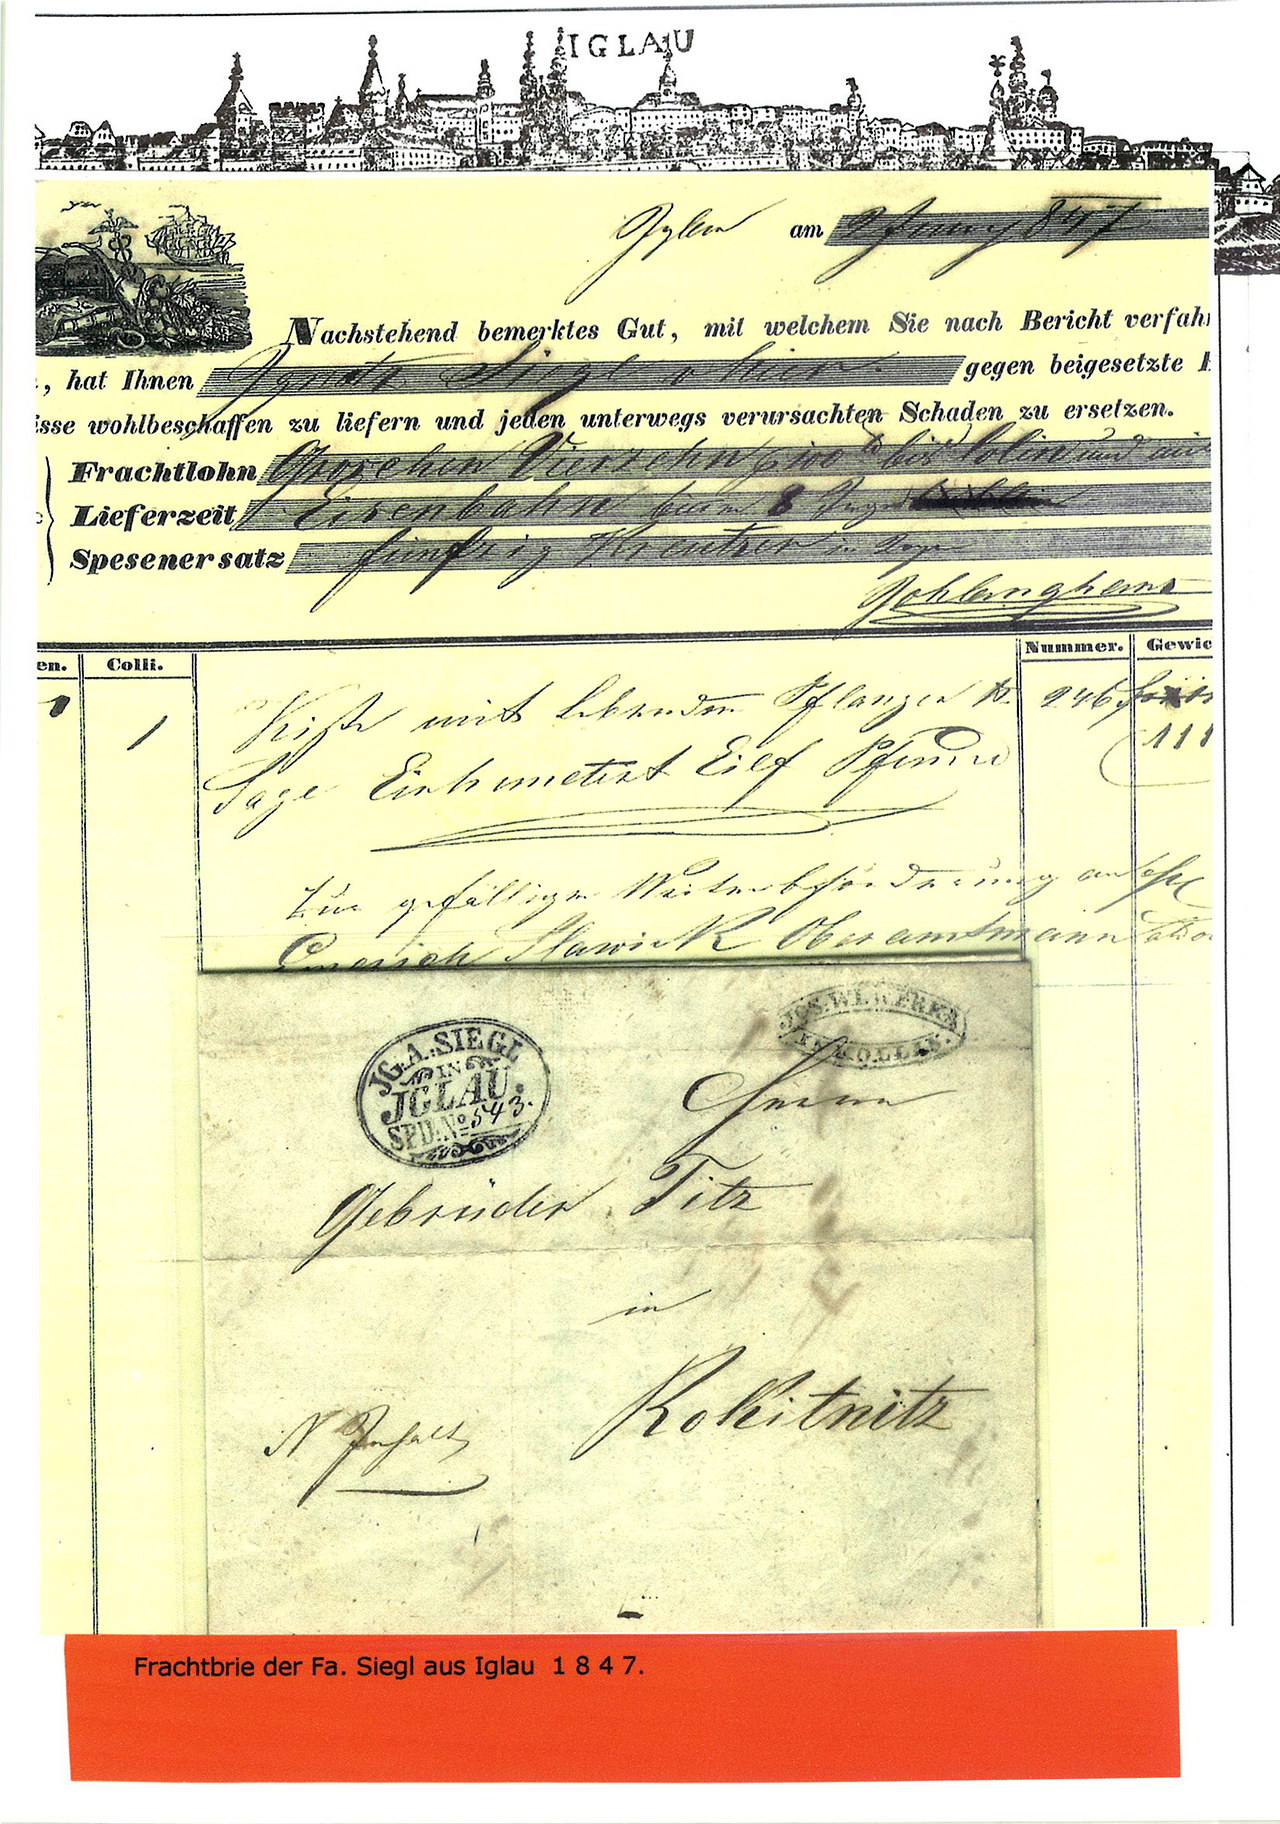 IGLAU
Iglau am 2 Juny 847
Nachstehend bemerktes Gut, mit welchem Sie nach Bericht verfahr
, hat Ihnen Ignatz Siegl gegen beigesetzte
isse wohlbeschaffen zu liefern und jeden unterwegs verursachten Schaden zu ersetzen.
Frachtlohn Groschen Vierzehn bis Colin und mit
Lieferzeit Eisenbahn 8
Spesenersatz fünfzig Kreutzer
en. Colli. Nummer. Gewic
1 Kiste mit lebenden Pflanzen No. 246
Sage Einhundert Eilf Pfund 111
Zur gefälligen Weiterbeförderung an
Emerich Slawick Oberamtmann
JOS. WLWERKA
IN KOLLIN.
JG. A. SIEGL
IN
JGLAU.
SPD. No 543.
Herrn
Gebrüder Titz
in
Rokitnitz
N Inhalt
Frachtbrie der Fa. Siegl aus Iglau 1 8 4 7.